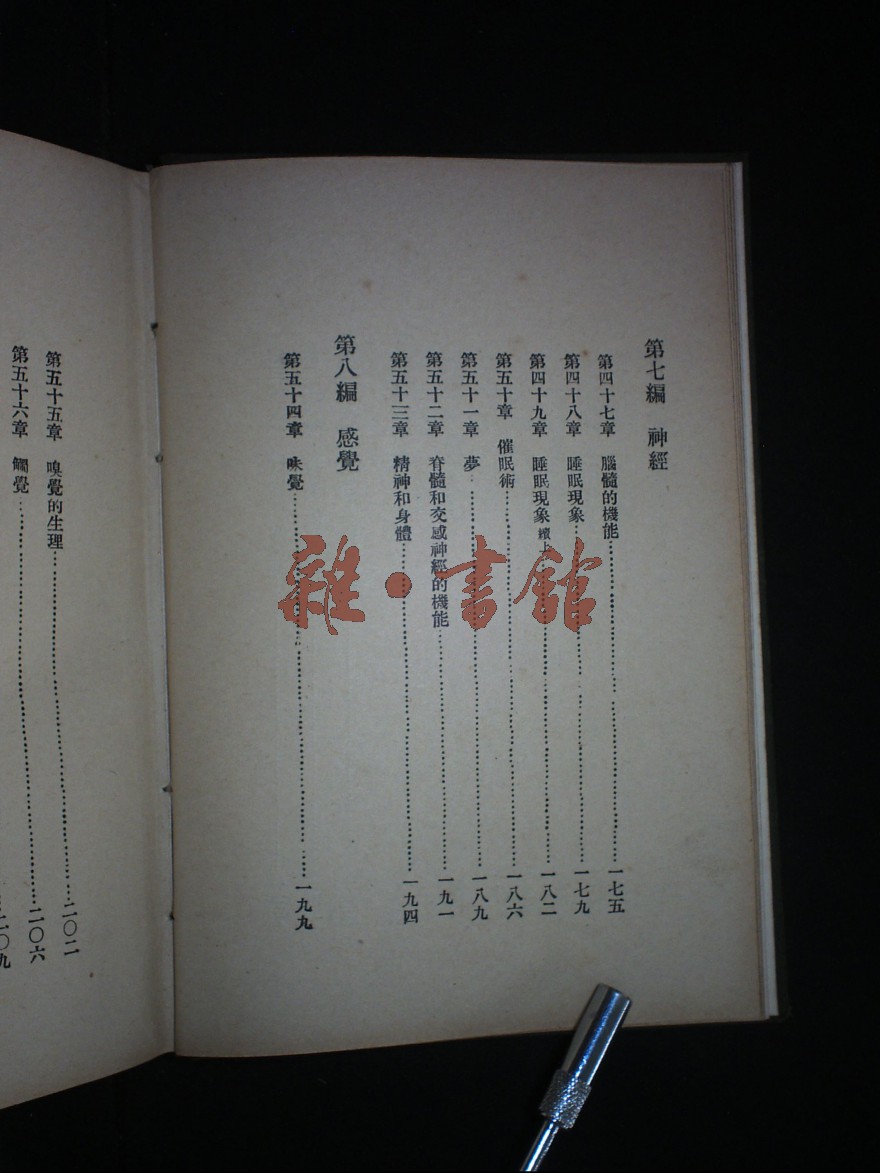 第七編 神經
第四十七章 腦髓的機能……一七五
第四十八章 睡眠現象……一七九
第四十九章 睡眠現象 續上……一八二
第五十章 催眠術……一八六
第五十一章 夢……一八九
第五十二章 脊髓和交感神經的機能……一九一
第五十三章 精神和身體……一九四
第八編 感覺
第五十四章 味覺……一九九
第五十五章 嗅覺的生理……二〇二
第五十六章 觸覺……二〇六
二〇九
雜·書館